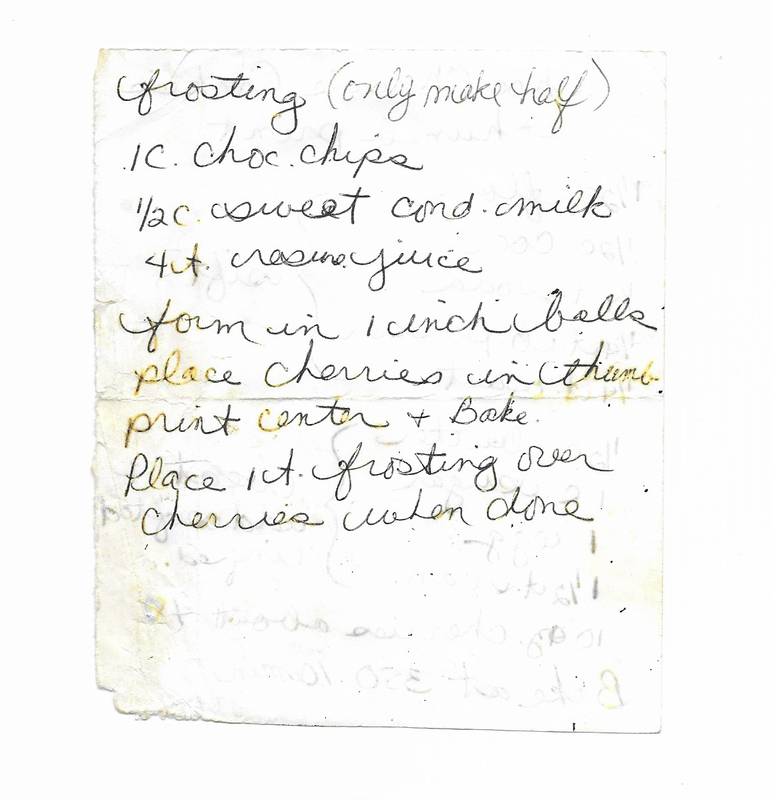 frosting (only make half)
1c. choc. chips
1/2c. sweet cond. milk
4t. juice
form in 1 inch balls
place cherries in thumb-
print center + Bake.
Place 1t. frosting over
cherries when done